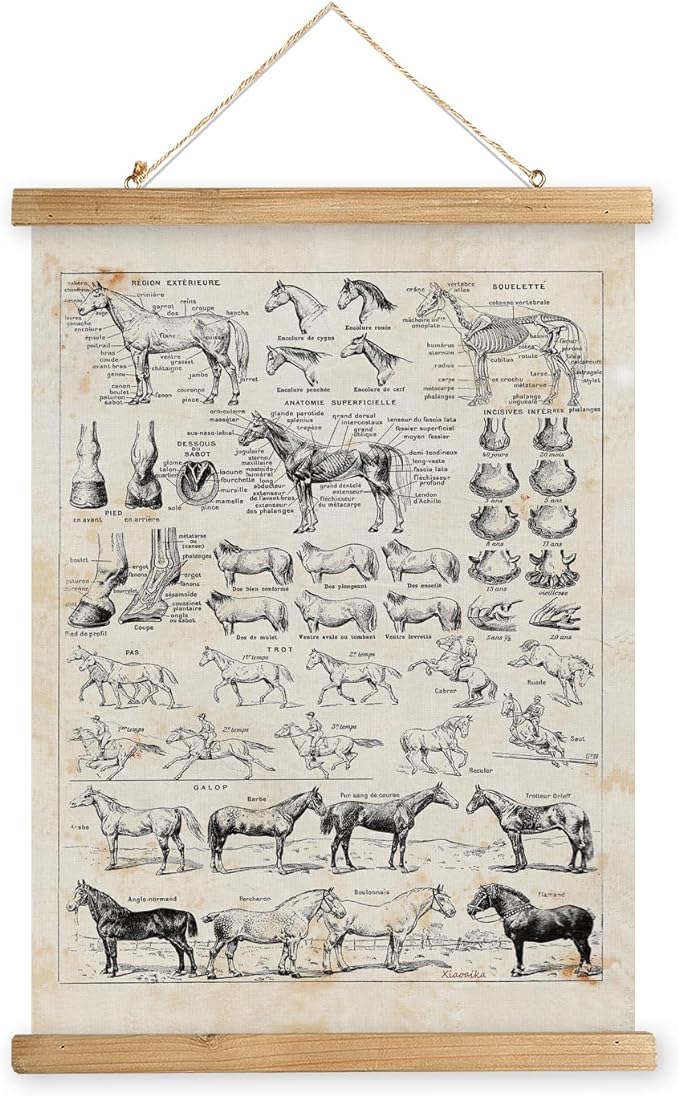 RÉGION EXTÉRIEURE
crinière
garrot
reins
dos
croupe
hanche
encolure
épaule
poitrail
bras
coude
avant bras
genou
canon
boulet
paturon
sabot
flanc
cuisse
ventre
grasset
châtaigne
jambe
jarret
couronne
pince
Encolure de cygne
Encolure rouée
Encolure penchée
Encolure de cerf
SQUELETTE
crâne
vertèbre
atlas
colonne vertébrale
mâchoire infre
omoplate
humérus
sternum
radius
carpe
métacarpe
phalanges
côtes
cubitus
bassin
rotule
fémur
péroné
tibia
calcanéum
astragale
stylet
os crochu
métatarse
phalanges
ANATOMIE SUPERFICIELLE
orbiculaire
masséter
glande parotide
splénius
trapèze
grand dorsal
intercostaux
grand
oblique
tenseur du fascia lata
fessier superficiel
moyen fessier
sus-naso-labial
jugulaire
sterno-
maxillaire
mastoïdo-
huméral
long
abducteur
extenseur
de l'avant bras
extenseur
des phalanges
grand dentelé
extenseur
fléchisseur
du métacarpe
demi-tendineux
long-vaste
fascia lata
fléchisseur
profond
tendon
d'Achille
INCISIVES INFÉRRES
40 jours
20 mois
3 ans
5 ans
8 ans
11 ans
15 ans
vieillesse
5 ans ½
20 ans
DESSOUS
DU
SABOT
glome
talon
quartier
sole
lacune
fourchette
muraille
mamelle
pince
PIED
en avant
en arrière
boulet
ergot
fanons
paturon
couronne
sabot
tourolet
métatarse
ou
(canon)
phalanges
ergot
fanons
sésamoïde
coussinet
plantaire
ongle
ou sabot
Pied de profil
Coupe
Dos bien conformé
Dos plongeant
Dos ensellé
Dos de mulet
Ventre avalé ou tombant
Ventre levretté
PAS
TROT
1er temps
2e temps
Cabrer
Ruade
1er temps
2e temps
3e temps
Reculer
Saut
GALOP
Arabe
Barbe
Pur sang de course
Trotteur Orloff
Anglo-normand
Percheron
Boulonnais
Flamand
Xiaoaika